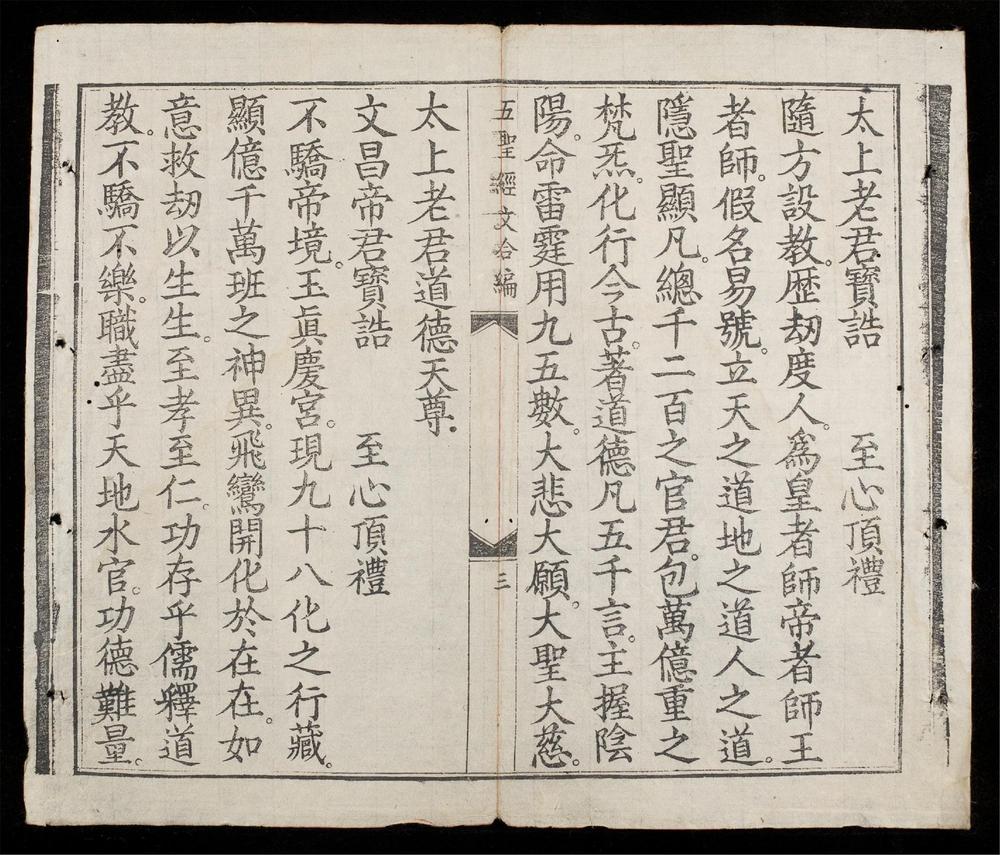 太上老君寶誥　至心頂禮
隨方設教。歷劫度人。為皇者師帝者師王
者師。假名易號。立天之道地之道人之道。
隱聖顯凡。總千二百之官君。包萬億重之
梵炁。化行今古。著道德凡五千言。主握陰
陽。命雷霆用九五數。大悲大願。大聖大慈。
五聖經文合編
三
太上老君道德天尊
文昌帝君寶誥　至心頂禮
不驕帝境。玉眞慶宮。現九十八化之行藏。
顯億千萬班之神異。飛鸞開化於在在。如
意救劫以生生。至孝至仁。功存乎儒釋道
教。不驕不樂。職盡乎天地水官。功德難量。